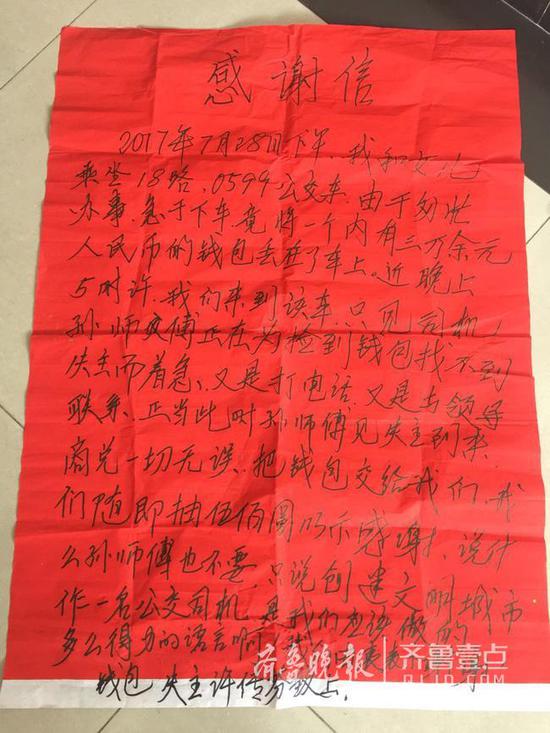 感谢信
2017年7月28日下午,我和女儿
乘坐18路.0599公交车.由于匆忙
办事.急于下车.竟将一个内有三万余元
人民币的钱包丢在了车上。近晚上
5时许.我们来到该车.只见司机
孙师傅正在为捡到钱包找不到
失主而着急、又是打电话.又是与领导
联系.正当此时孙师傅见失主到来
商兑一切无误.把钱包交给我们.我
们随即抽伍佰圆以示感谢.说什
么孙师傅也不要.只说创建文明城市
作一名公交司机.是我们应该做的
多么得力的语言啊
钱包失主许传 上.
齐鲁晚报 齐鲁壹点